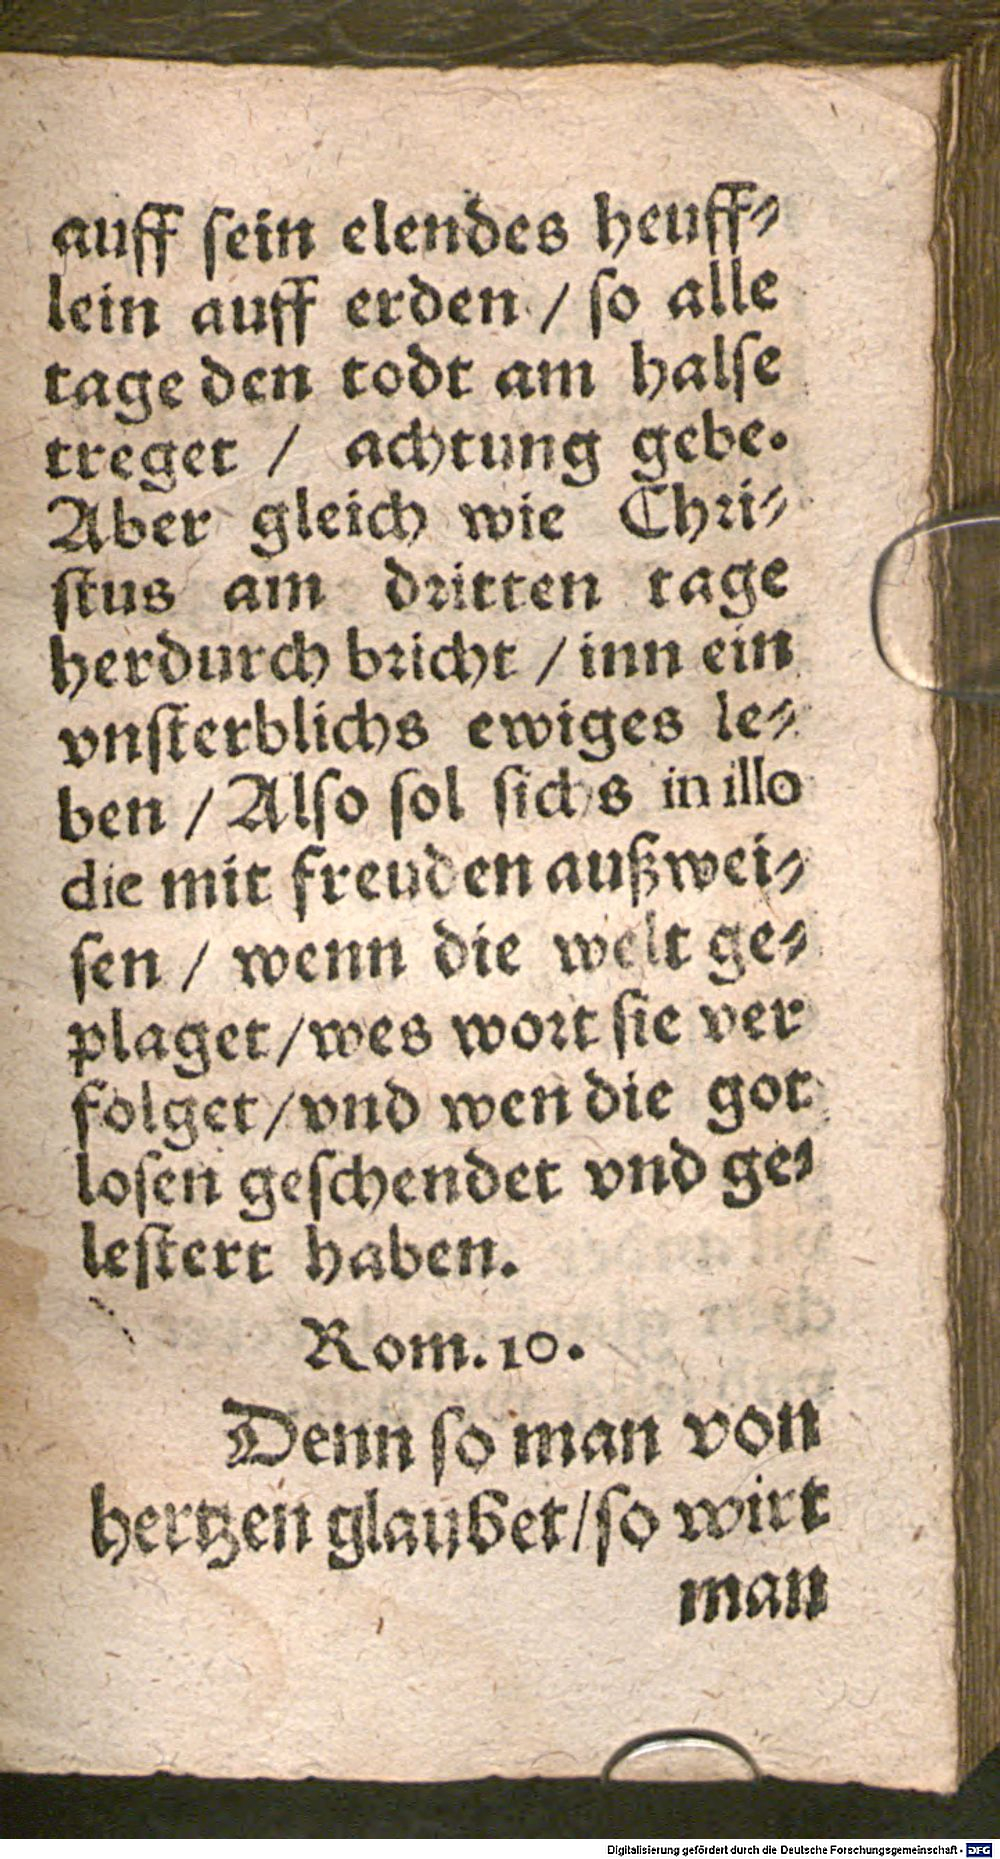 auff ſein elendes heuff⸗
lein auff erden / ſo alle
tage den todt am halſe
treget / achtung gebe.
Aber gleich wie Chri⸗
ſtus am dritten tage
herdurch bricht / inn ein
vnſterblichs ewiges le⸗
ben / Alſo ſol ſichs in illo
die mit freuden außwei⸗
ſen / wenn die welt ge⸗
plaget / wes wort ſie ver
folget / vnd wen die got
loſen geſchendet vnd ge⸗
leſtert haben.
Rom. 10.
Denn ſo man von
hertzen glaubet / ſo wirt
man
Digitalisierung gefördert durch die Deutsche Forschungsgemeinschaft - DFG